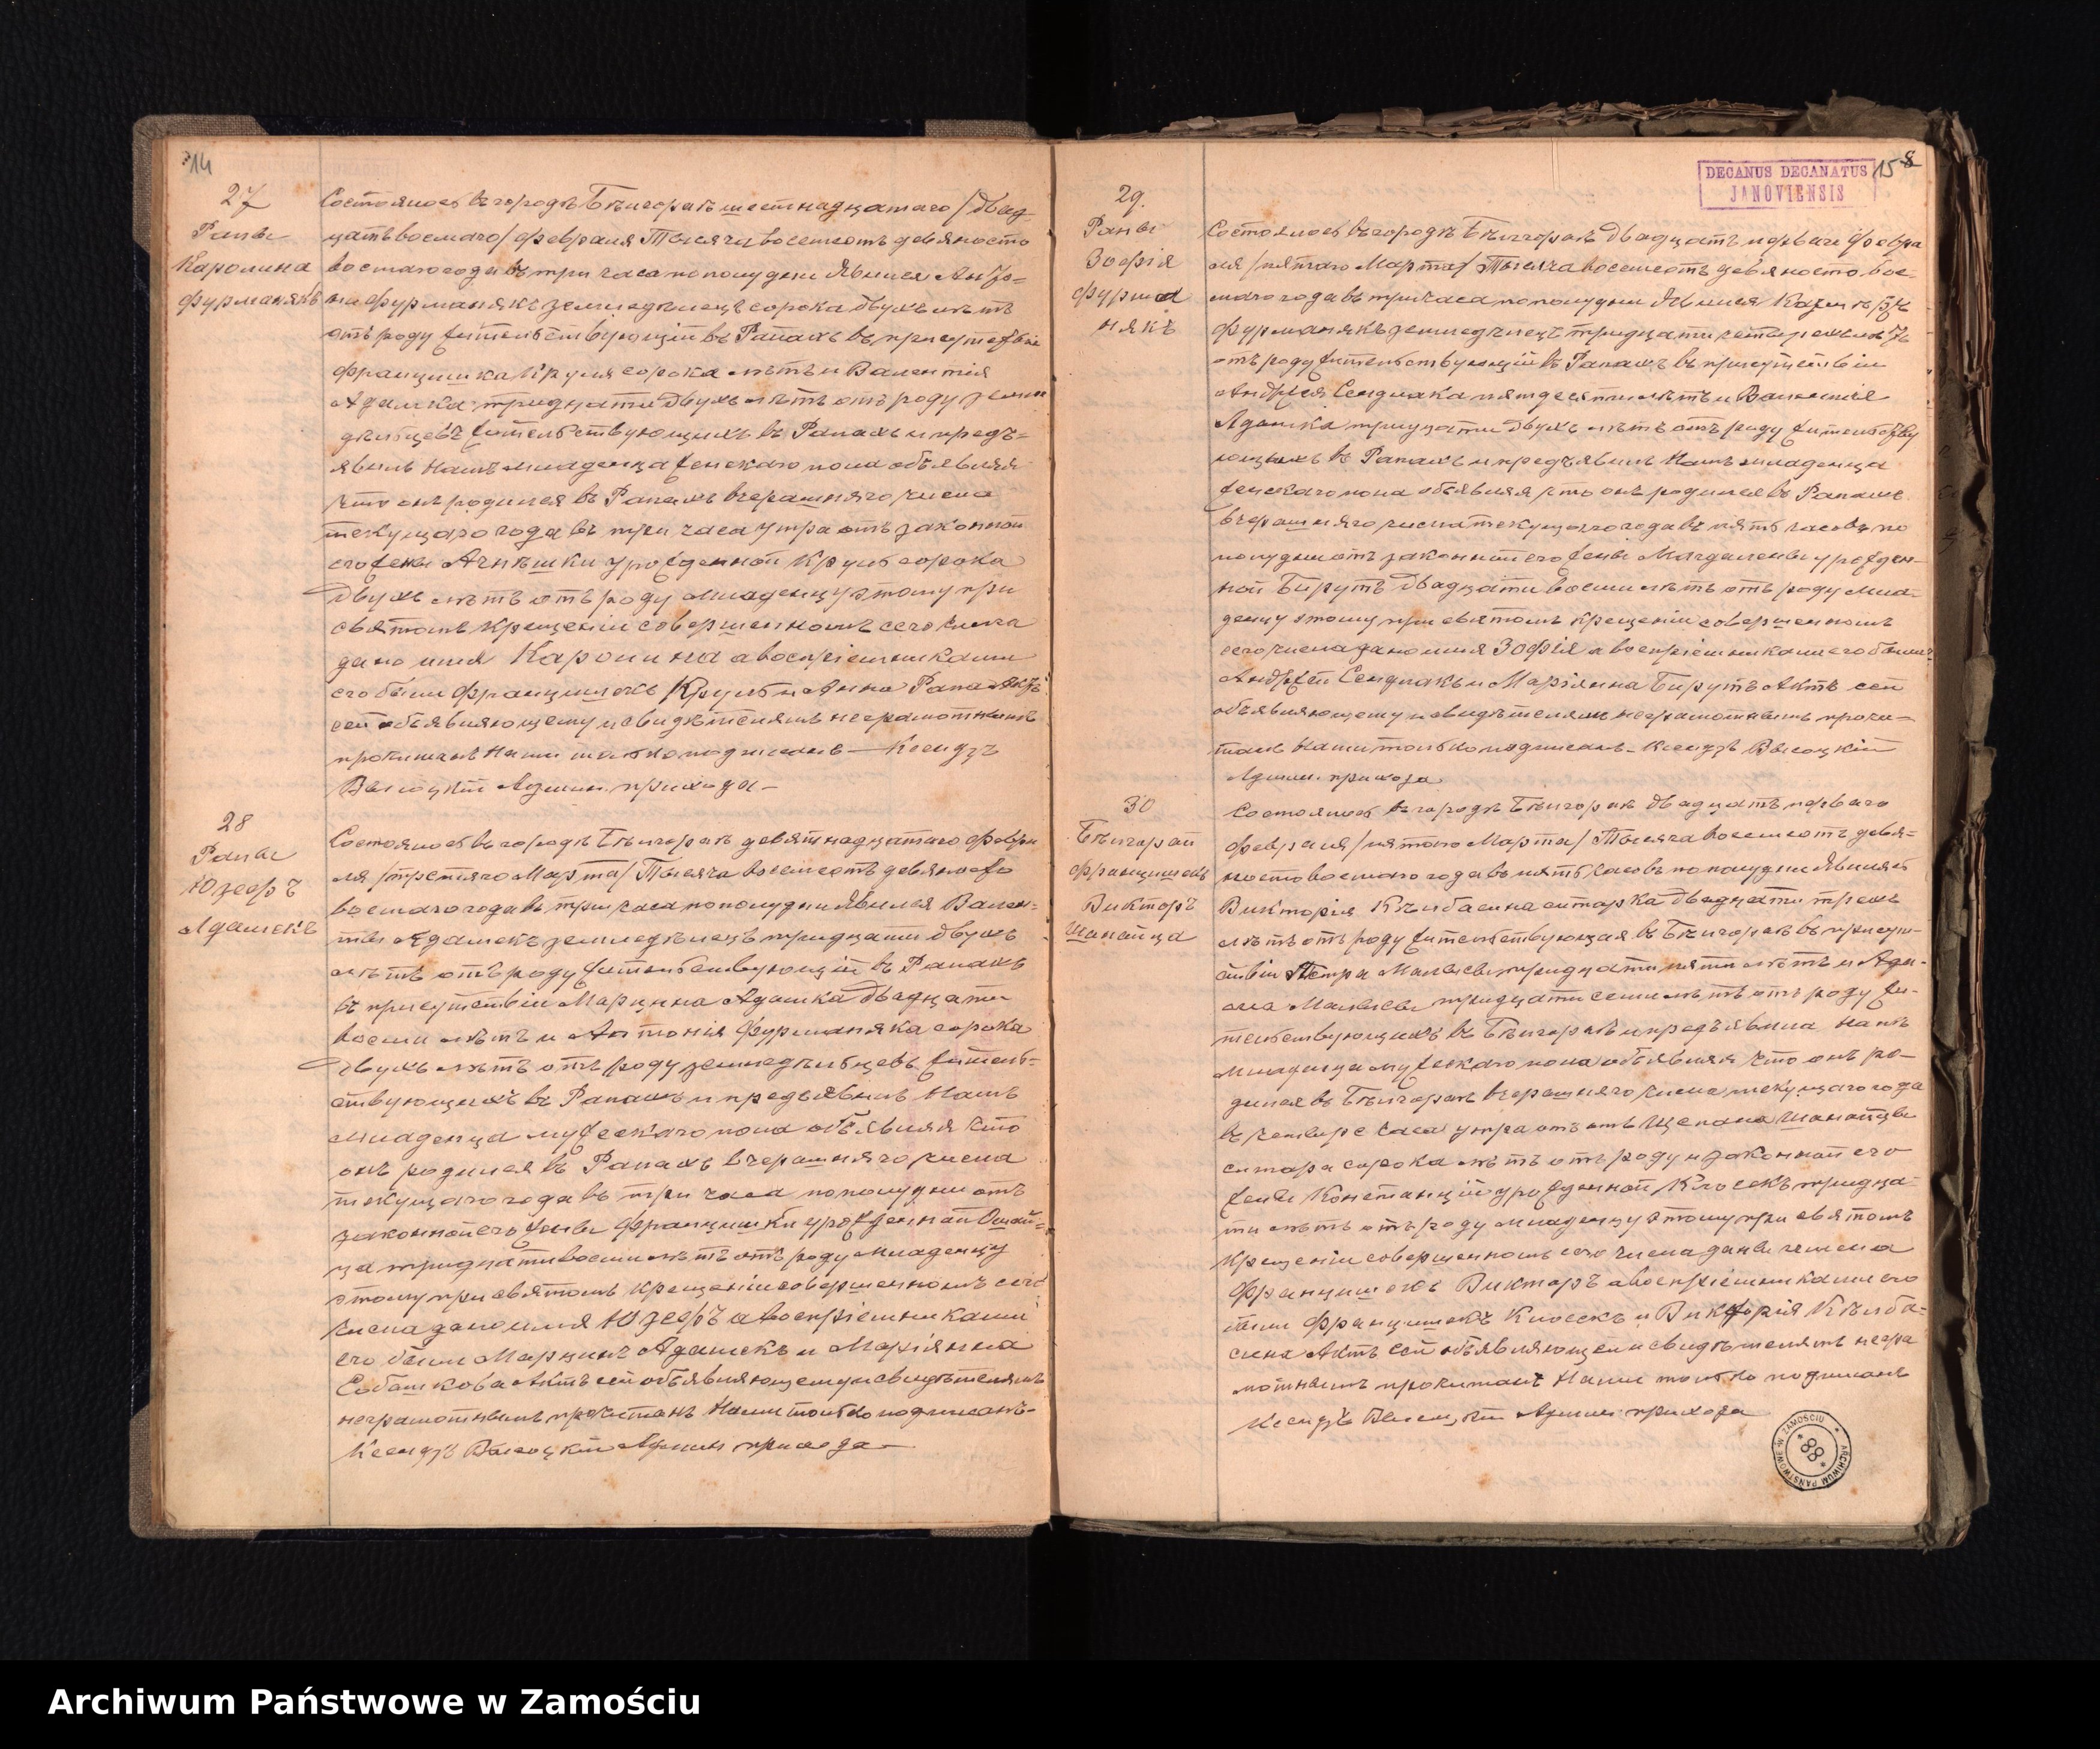 14
27
Рапы
Каролина
Фурманякъ
Состоялось въ городѣ Бѣлгораѣ шестнадцатаго /двад-
цать восьмаго/ Февраля Тысяча восемсотъ девяносто
восьмаго года въ три часа по полудни Явился Анто-
ни Фурманякъ земледѣлецъ сорока двухъ лѣтъ
отъ роду жительствующій въ Рапахъ въ присутствіи
Францишка Круля сорока лѣтъ и Валентія
Адамка тридцати двухъ лѣтъ отъ роду земле
дѣльцевъ жительствующихъ въ Рапахъ и предъ-
явилъ Намъ младенца женскаго пола объявляя
что онъ родился въ Рапахъ вчерашняго числа
текущаго года въ три часа утра отъ законной
его жены Агнѣшки урожденной Круль сорока
двухъ лѣтъ отъ роду Младенцу этому при
святомъ крещеніи совершенномъ сего числа
дано имя Каролина а воспріемниками
его были Францишекъ Круль и Анна
сей объявляющему и свидѣтелямъ неграмотнымъ
прочитанъ Нами только подписанъ — Ксендзъ
Высоцкій Админ. прихода —
28
Рапы
Юзефъ
Адамекъ
Состоялось въ городѣ Бѣлгораѣ девятнадцатаго Февра
ля /третяго Марта/ Тысяча восемсотъ девяносто
восьмаго года въ три часа по полудни Явился Вален-
тій Адамекъ земледѣлецъ тридцати двухъ
лѣтъ отъ роду жительствующій въ Рапахъ
въ присутствіи Марцина Адамка двадцати
восьми лѣтъ и Антонія Фурманяка сорока
двухъ лѣтъ отъ роду земледѣльцевъ житель-
ствующихъ въ Рапахъ и предъявилъ Намъ
младенца мужескаго пола объявляя что
онъ родился въ Рапахъ вчерашняго числа
текущаго года въ три часа по полудни отъ
законной его жены Францишки урожденной
ца тридцати восьми лѣтъ отъ роду Младенцу
этому при святомъ крещеніи совершенномъ сего
числа дано имя Юзефъ а воспріемниками
его были Марцинъ Адамекъ и Маріянна
Собашкова Актъ сей объявляющему и свидѣтелямъ
неграмотнымъ прочитанъ Нами только подписанъ -
Ксендзъ Высоцкій Админ прихода —
DECANUS DECANATUS
JANOVIENSIS
15 8
29.
Рапы
Зофія
Фурма
някъ
Состоялось въ городѣ Бѣлгораѣ двадцать перваго Февра
ля /пятаго Марта/ Тысяча восемсотъ девяносто вос-
маго года въ три часа по полудни Явился
Фурманякъ земледѣлецъ тридцати четырехъ лѣтъ
отъ роду жительствующій въ Рапахъ въ присутствіи
Андрея Сендлака пятдесяти лѣтъ и Валентія
Адамка тридцати двухъ лѣтъ отъ роду жительству
ющихъ въ Рапахъ и предъявилъ Намъ младенца
женскаго пола объявляя что онъ родился въ Рапахъ
вчерашняго числа текущаго года въ пять часовъ по
полудни отъ законной его жены Магдалены урожден-
ной Бирутъ двадцати восьми лѣтъ отъ роду Мла-
денцу этому при святомъ крещеніи совершенномъ
сего числа дано имя Зофія а воспріемниками его были
Андрей Сендлакъ и Маріянна Бирутъ Актъ сей
объявляющему и свидѣтелямъ неграмотнымъ прочи-
танъ Нами только подписанъ - Ксендзъ Высоцкій
Админ. прихода
30
Бѣлгорай
Францишекъ
Викторъ
Шанайца
Состоялось въ городѣ Бѣлгораѣ двадцать перваго
февраля /пятаго Марта/ Тысяча восемсотъ девя-
носто восьмаго года въ пять часовъ по полудни Явилась
Викторія Кѣлбасина ситарка двадцати трехъ
лѣтъ отъ роду жительствующая въ Бѣлгораѣ въ присут-
ствіи Петра тридцати пяти лѣтъ и Ада-
ма тридцати семи лѣтъ отъ роду жи-
тельствующихъ въ Бѣлгораѣ и предъявила Намъ
младенца мужескаго пола объявляя что онъ ро-
дился въ Бѣлгораѣ вчерашняго числа текущаго года
въ четыре часа утра отъ Щепана Шанайцы
ситара сорока лѣтъ отъ роду и законной его
жены Констанціи урожденной Клосекъ тридца-
ти лѣтъ отъ роду младенцу этому при святомъ
крещеніи совершенномъ сего числа даны имена
Францишекъ Викторъ а воспріемниками его
были Францишекъ Клосекъ и Викторія Кѣлба-
сина Актъ сей объявляющей и свидѣтелямъ негра
мотнымъ прочитанъ Нами только подписанъ
Ксендзъ Высоцкій Админ прихода
ARCHIWUM PAŃSTWOWE W ZAMOŚCIU
88
Archiwum Państwowe w Zamościu